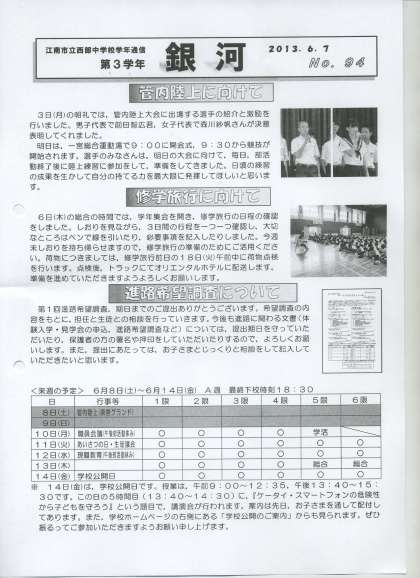 江南市立西部中学校学年通信
第3学年
銀河
2013.6.7
No.94
管内陸上に向けて
3日(月)の朝礼では、管内陸上大会に出場する選手の紹介と激励を
行いました。男子代表で前田智広君、女子代表で森川紗帆さんが決意
表明してくれました。
明日は、一宮総合運動場で9:00に開会式、9:30から競技が
開始されます。選手のみなさんは、明日の大会に向けて、毎日、部活
動終了後に陸上練習に参加をして、準備をしてきました。日頃の練習
の成果を生かして自分の持てる力を最大限に発揮してほしいと思いま
す。
修学旅行に向けて
6日(木)の総合の時間では、学年集会を開き、修学旅行の日程の確認
をしました。しおりを見ながら、3日間の行程を一つ一つ確認し、大切
なところはペンで線を引いたり、必要事項を記入したりしました。今週
末しおりを持ち帰らせますので、修学旅行の準備のためにご活用くださ
い。荷物につきましては、修学旅行前日の18日(火)午前中に荷物点検
を行います。点検後、トラックにてオリエンタルホテルに配送します。
準備を進めていただきますようよろしくお願いします。
進路希望調査について
第1回進路希望調査、期日までのご提出ありがとうございます。希望調査の内
容をもとに、担任と生徒との相談を行っていきます。今後も進路に関わる文書(体
験入学・見学会の申込、進路希望調査など)については、提出期日を守っていた
だいたり、保護者の方の署名や押印をしていただいたりするので、よろしくお願
いします。また、提出にあたっては、お子さまとじっくりと相談をして記入して
いただきたいと思います。
<来週の予定> 6月8日(土)~6月14日(金) A週 最終下校時刻18:30
日 行事等 1限 2限 3限 4限 5限 6限
8日(土) 管内陸上
9日(日)
10日(月) 職員会議 ○ ○ ○ ○ 学活
11日(火) あいさつの日・生徒議会 ○ ○ ○ ○ ○ ○
12日(水) 現職教育 ○ ○ ○ ○ ○
13日(木) ○ ○ ○ ○ 総合 総合
14日(金) 学校公開日 ○ ○ ○ ○ ○ ○
※ 14日(金)は、学校公開日です。授業は、午前9:00~12:35、午後13:40~15:
30です。この日の5時間目(13:40~14:30)に、『ケータイ・スマートフォンの危険性
から子どもを守ろう』という題目で、講演会が行われます。案内は先日、お子さまを通して配付し
てあります。また、学校ホームページの右側にある「学校公開のご案内」からも見られます。ぜひ
振るってご参加いただきますようお願い申し上げます。